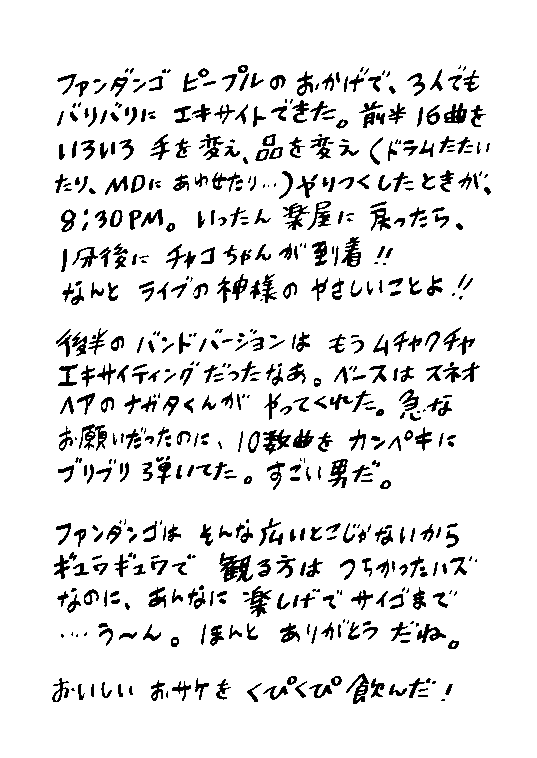 ファンダンゴ ピープルの おかげで、3人でも
バリバリに エキサイトできた。前半 16曲を
いろいろ 手を変え、品を変え（ドラムたたい
たり、MDに あわせたり…）やりつくしたときが、
8:30PM。いったん 楽屋に 戻ったら、
1分後に チャコちゃんが 到着!!
なんと ライブの 神様の やさしいことよ!!
後半の バンドバージョンは もう ムチャクチャ
エキサイティングだったなあ。ベースは スネオ
ヘアの ナガタくんが やってくれた。急な
お願いだったのに、10数曲を カンペキに
ブリブリ 弾いてた。すごい 男だ。
ファンダンゴは そんな 広いとこじゃないから
ギュウギュウで 観る方は つらかったハズ
なのに、あんなに 楽しげで サイゴまで
…う〜ん。ほんと ありがとう だね。
おいしい おサケを くぴくぴ 飲んだ!